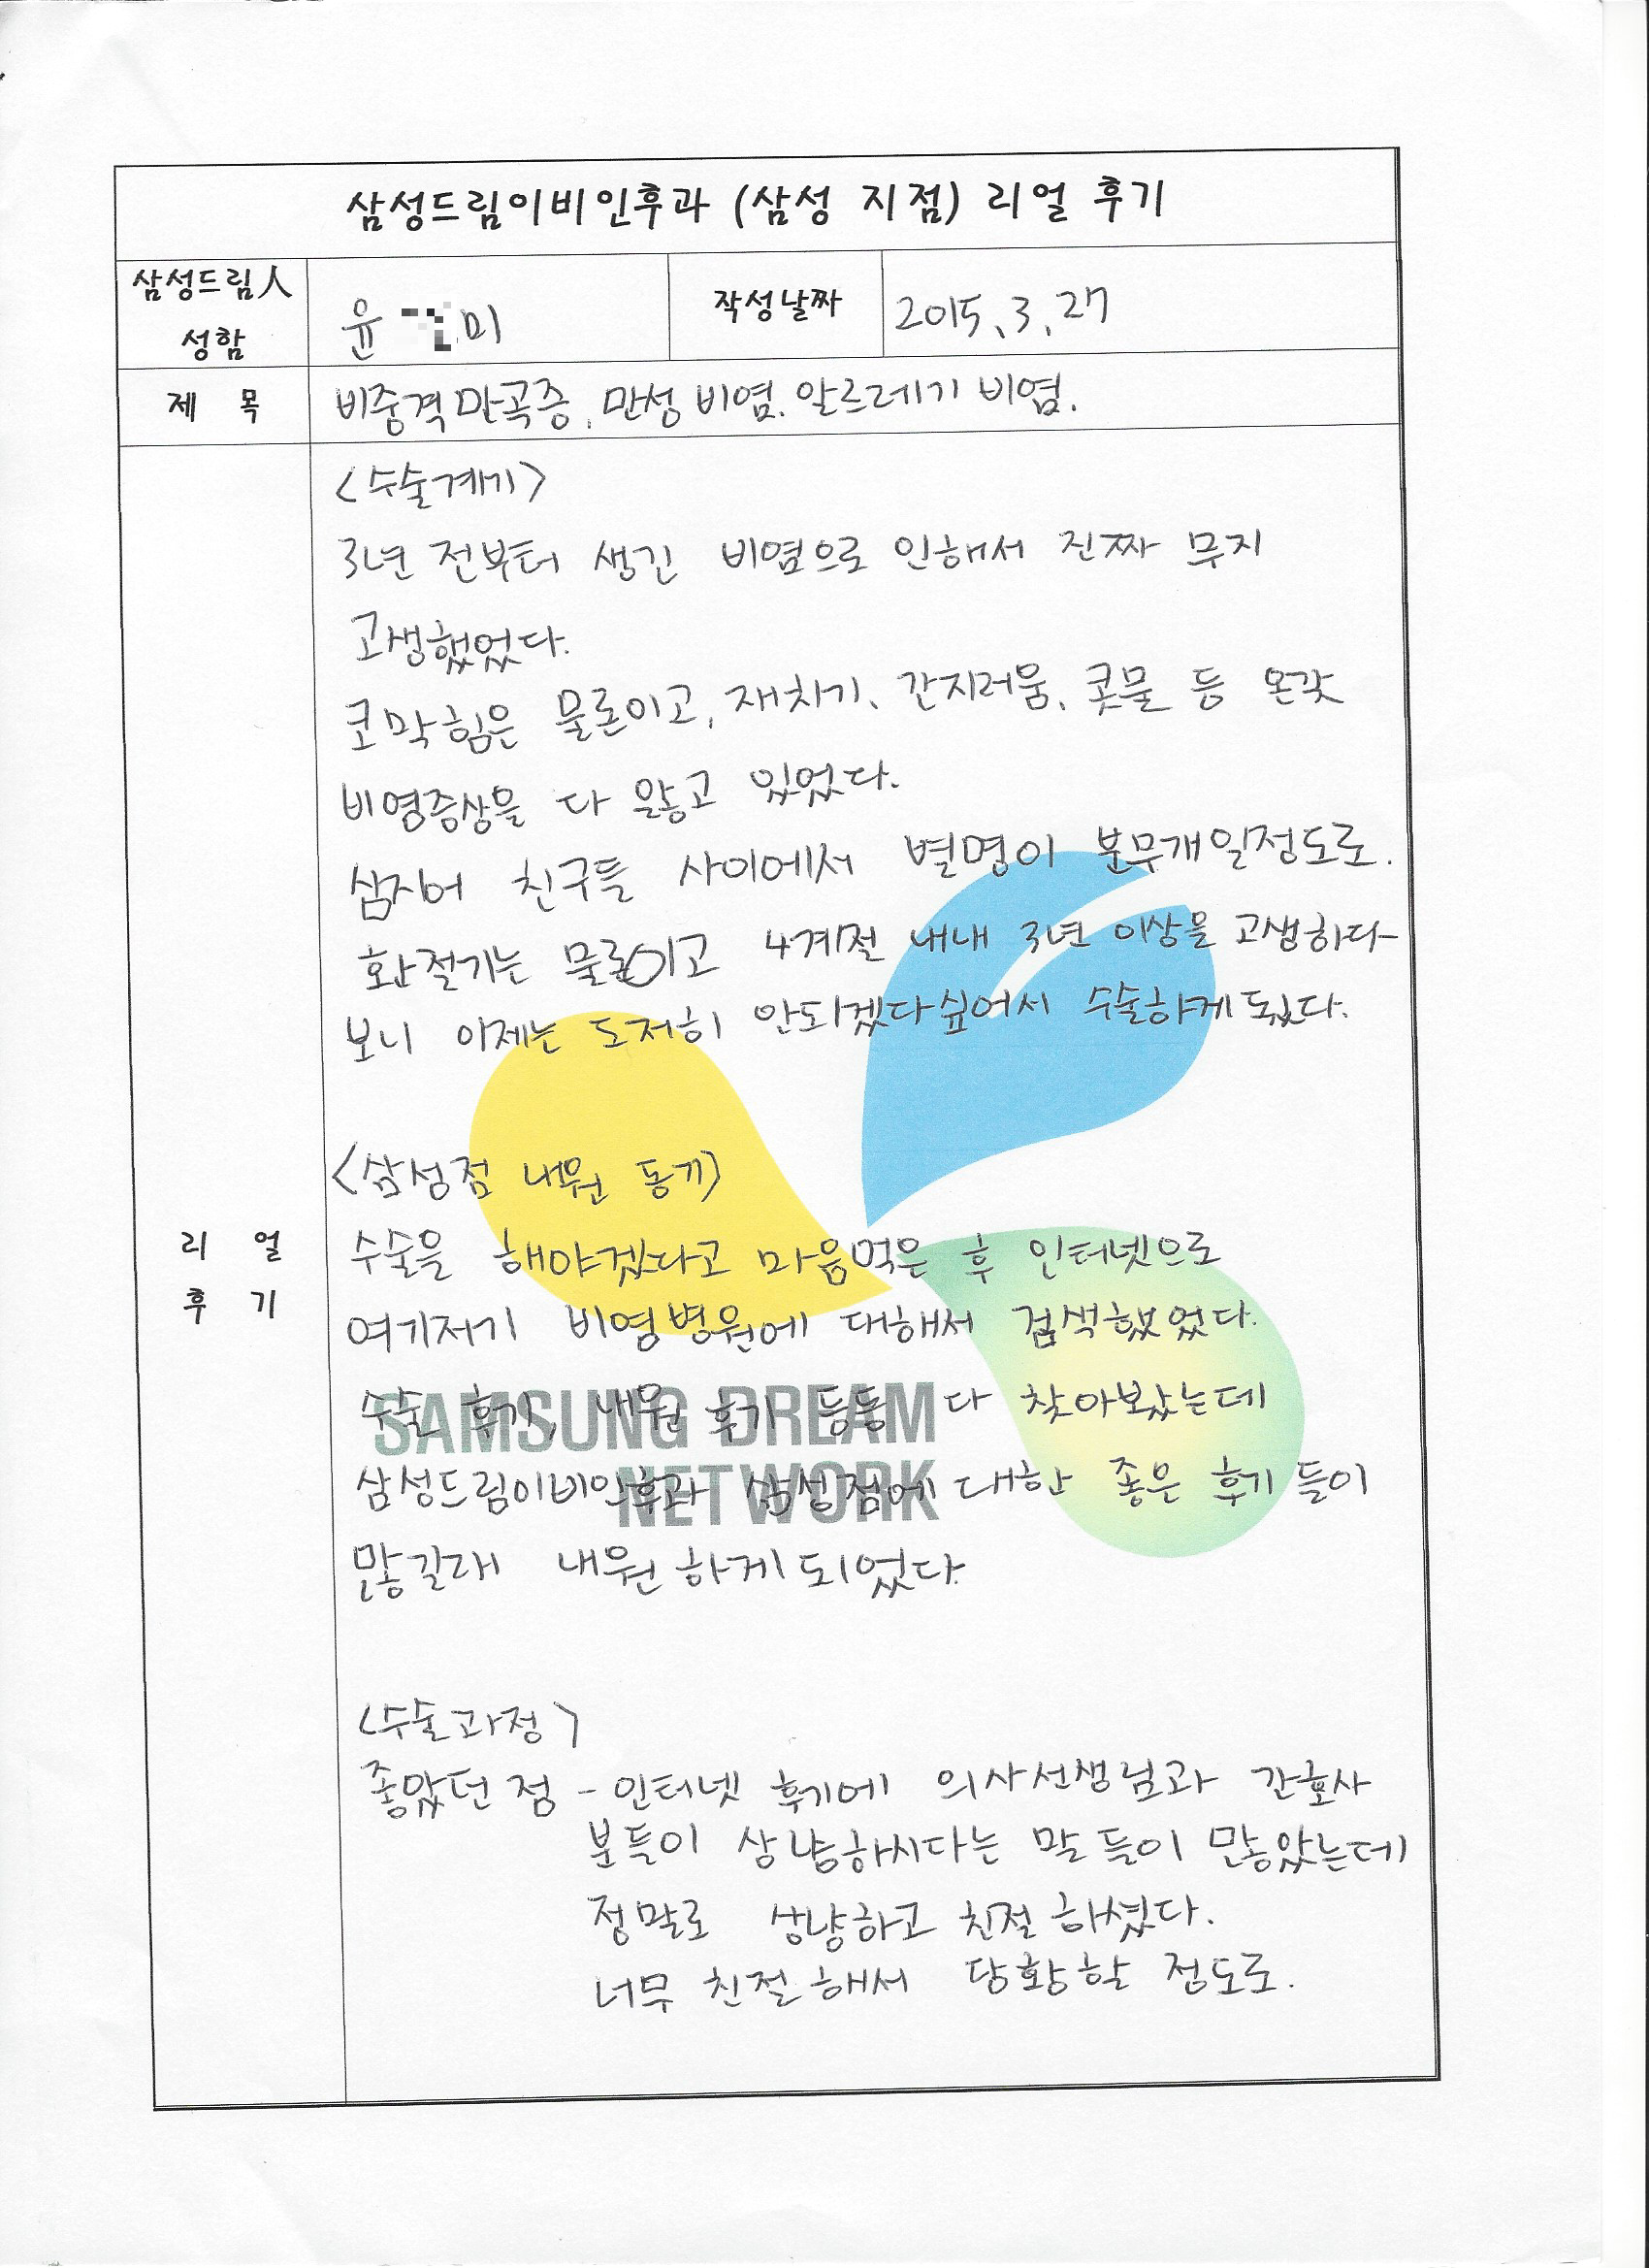 삼성드림이비인후과 (삼성 지점) 리얼 후기
삼성드림人
성함
윤 미
작성날짜
2015. 3. 27
제 목
비중격만곡증. 만성 비염. 알르레기 비염.
<수술계기>
3년 전부터 생긴 비염으로 인해서 진짜 무지
고생했었다.
코막힘은 물론이고, 재치기, 간지러움, 콧물 등 온갖
비염증상을 다 앓고 있었다.
심지어 친구들 사이에서 별명이 분무개일정도로.
환절기는 물론이고 4계절 내내 3년 이상을 고생하다
보니 이제는 도저히 안되겠다싶어서 수술하게 됐다.
<삼성점 내원 동기>
리 얼
후 기
수술을 해야겠다고 마음먹은 후 인터넷으로
여기저기 비염병원에 대해서 검색했었다.
수술 후기, 내원 후기 등등 다 찾아봤는데
삼성드림이비인후과 삼성점에 대한 좋은 후기들이
많길래 내원하게 되었다.
SAMSUNG DREAM
NETWORK
<수술과정>
좋았던 점 - 인터넷 후기에 의사선생님과 간호사
분들이 상냥하시다는 말들이 많았는데
정말로 상냥하고 친절하셨다.
너무 친절해서 당황할 정도로.